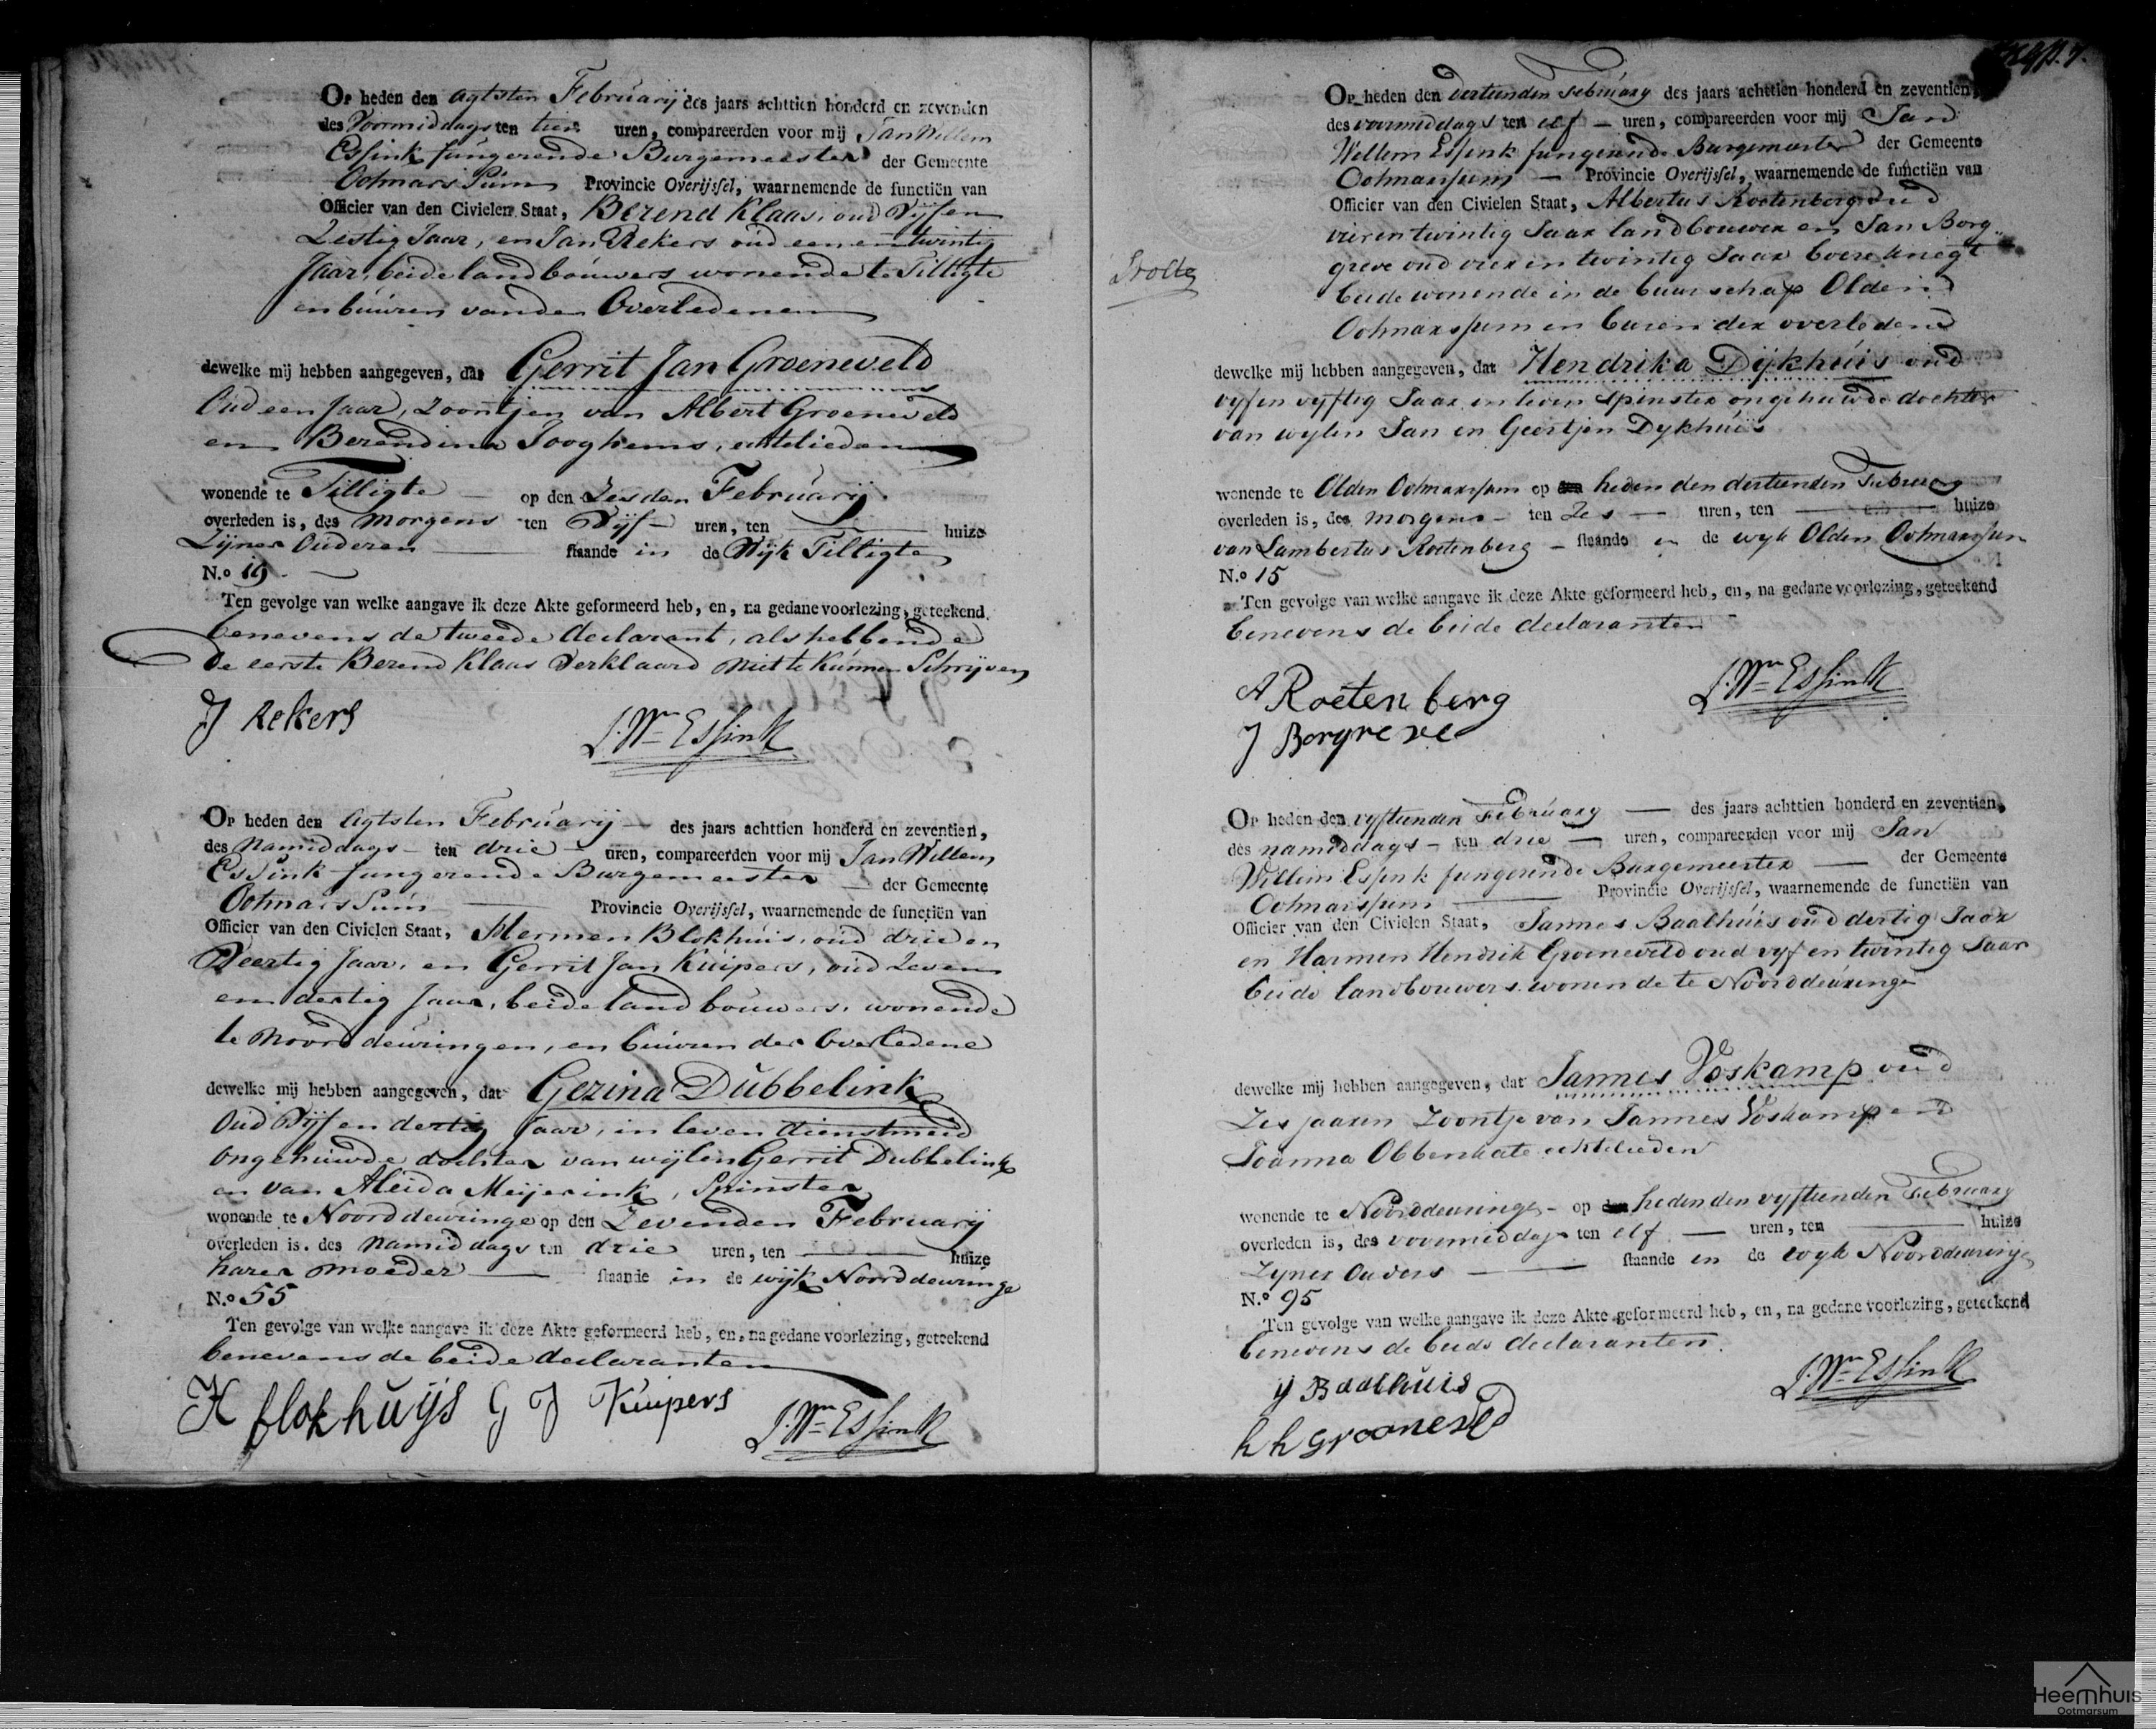 Op heden den agtsten Februarij des jaars achttien honderd en zevenden
des Voormiddags ten tien uren, compareerden voor mij Jan Willem
Essink fungerende Burgemeester der Gemeente
Ootmarssum Provincie Overijssel, waarnemende de functiën van
Officier van den Civielen Staat, Berend Klaas, oud Vijf en
Zestig Jaar, en Jan Rekers oud een en twintig
Jaar, beide landbouwers wonende te Tilligte
en buuren van den Overledenen
dewelke mij hebben aangegeven, dat Gerrit Jan Groeneveld
Oud een Jaar, Zoontjen van Albert Groeneveld
en Berendina Jooghems, echtelieden
wonende te Tilligte op den Zesden Februarij
overleden is, des Morgens ten Vijf uren, ten huize
Zijner Ouderen staande in de Wijk Tilligte
N.o 19
Ten gevolge van welke aangave ik deze Akte geformeerd heb, en, na gedane voorlezing, geteekend
benevens de tweede declarant, als hebbende
de eerste Berend Klaas Verklaard niet te kunnen Schrijven
J Rekers
J. Wm Essink
Op heden den Agtsten Februarij des jaars achttien honderd en zeventien,
des Namiddags ten drie uren, compareerden voor mij Jan Willem
Essink fungerende Burgemeester der Gemeente
Ootmarssum Provincie Overijssel, waarnemende de functiën van
Officier van den Civielen Staat, Hermen Blokhuis, oud drie en
Veertig Jaar, en Gerrit Jan Kuipers, oud Zeven
en dertig Jaar, beide landbouwers, wonende
te Noorddeuringen, en buuren der Overledene
dewelke mij hebben aangegeven, dat Gezina Dubbelink
Oud Vijf en dertig Jaar, in leven dienstmeid
Ongehuwde dochter van wijlen Gerrit Dubbelink
en van Aleida Meijerink, Spinster
wonende te Noorddeuringe op den Zevenden Februarij
overleden is. des Namiddags ten drie uren, ten huize
harer moeder staande in de wijk Noorddeuringe
N.o 55
Ten gevolge van welke aangave ik deze Akte geformeerd heb, en, na gedane voorlezing, geteekend
benevens de beide declaranten
H Blokhuijs G J Kuipers
J. Wm Essink
Op heden den dertienden February des jaars achttien honderd en zeventien,
des voormiddags ten elf uren, compareerden voor mij Jan
Willem Essink fungerende Burgemeester der Gemeente
Ootmarssum Provincie Overijssel, waarnemende de functiën van
Officier van den Civielen Staat, Albertus Roetenberg oud
vier en twintig Jaar landbouwer en Jan Borg
greve oud vier en twintig Jaar boere knegt
beide wonende in de buurschap Olden
Ootmarssum en buren der overledene
dewelke mij hebben aangegeven, dat Hendrika Dijkhuis oud
vyf en vyftig Jaar in leven spinster ongehuwde dochter
van wylen Jan en Geertjen Dykhuis
wonende te Olden Ootmarssum op heden den dertienden February
overleden is, des morgens ten Zes uren, ten huize
van Lambertus Roetenberg staande in de wyk Olden Ootmarssum
N.o 15
Ten gevolge van welke aangave ik deze Akte geformeerd heb, en, na gedane voorlezing, geteekend
benevens de beide declaranten
A Roetenberg
J. Wm Essink
J Borgreve
Op heden den vyftienden February des jaars achttien honderd en zeventien,
des namiddags ten drie uren, compareerden voor mij Jan
Willem Essink fungerende Burgemeester der Gemeente
Ootmarssum Provincie Overijssel, waarnemende de functiën van
Officier van den Civielen Staat, Jannes Baalhuis oud dertig Jaar
en Harmen Hendrik Groeneveld oud vyf en twintig Jaar
beide landbouwers wonende te Noorddeuringe
dewelke mij hebben aangegeven, dat Jannes Voskamp oud
Zes jaaren Zoontje van Jannes Voskamp en
Joanna Obbenhate echtelieden
wonende te Noorddeuringe op heden den vyftienden February
overleden is, des voormiddags ten elf uren, ten huize
Zyner Ouders staande in de wyk Noorddeuringe
N.o 95
Ten gevolge van welke aangave ik deze Akte geformeerd heb, en, na gedane voorlezing, geteekend
benevens de beide declaranten.
J Baalhuis
J. Wm Essink
h h groeneveld
Heemhuis
Ootmarsum